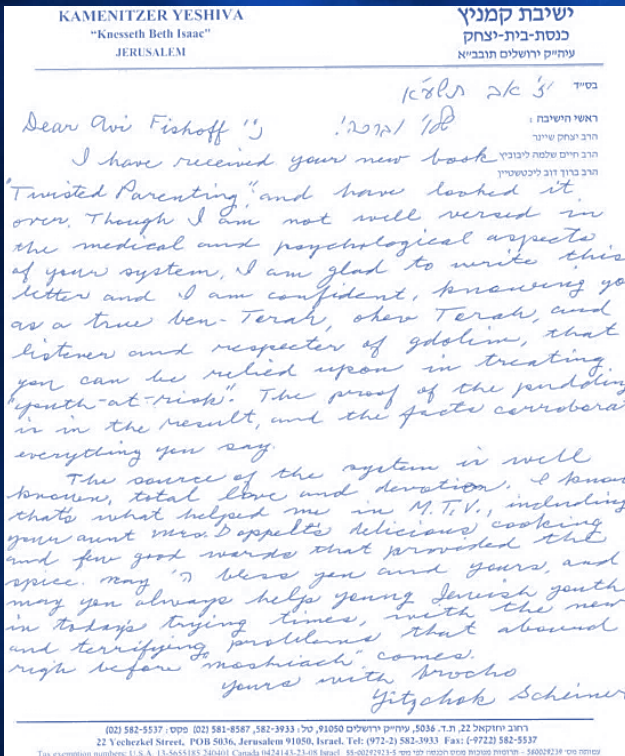 KAMENITZER YESHIVA
"Knesseth Beth Isaac"
JERUSALEM
ישיבת קמניץ
כנסת-בית-יצחק
עיה״ק ירושלים תובב״א
בס״ד
אב תשע״א
ראשי הישיבה :
הרב יצחק שיינר
הרב חיים שלמה ליבוביץ
הרב ברוך דוב ליכטשטיין
Dear Avi Fishoff נ״י
וברכה!
I have received your new book
"Twisted Parenting", and have looked it
over. Though I am not well versed in
the medical and psychological aspects
of your system, I am glad to write this
letter and I am confident, knowing yo
as a true ben-Torah, ohev Torah, and
listener and respecter of gdolim, that
you can be relied upon in treating
"youth-at-risk". The proof of the pudding
is in the result, and the facts corrobora
everything you say.
The source of the system is well
known, total love and devotion. I know
that's what helped me in M.T.V., including
your aunt Mrs. Doppelt's delicious cooking
and few good words that provided the
spice. May ה' bless you and yours, and
may you always help young Jewish youth
in today's trying times, with the new
and terrifying problems that abound
righ before "moshiach" comes.
Yours with brocho
Yitzchok Scheiner
רחוב יחזקאל 22, ת.ד. 5036, עיה״ק ירושלים 91050, טל: 582-3933, 581-8587 (02) פקס : 582-5537 (02)
22 Yechezkel Street, POB 5036, Jerusalem 91050, Israel, Tel: (972-2) 582-3933 Fax: (-9722) 582-5537
Tax exemption numbers: U.S.A. 13-5655185 240401 Canada 0424143-23-08 Israel